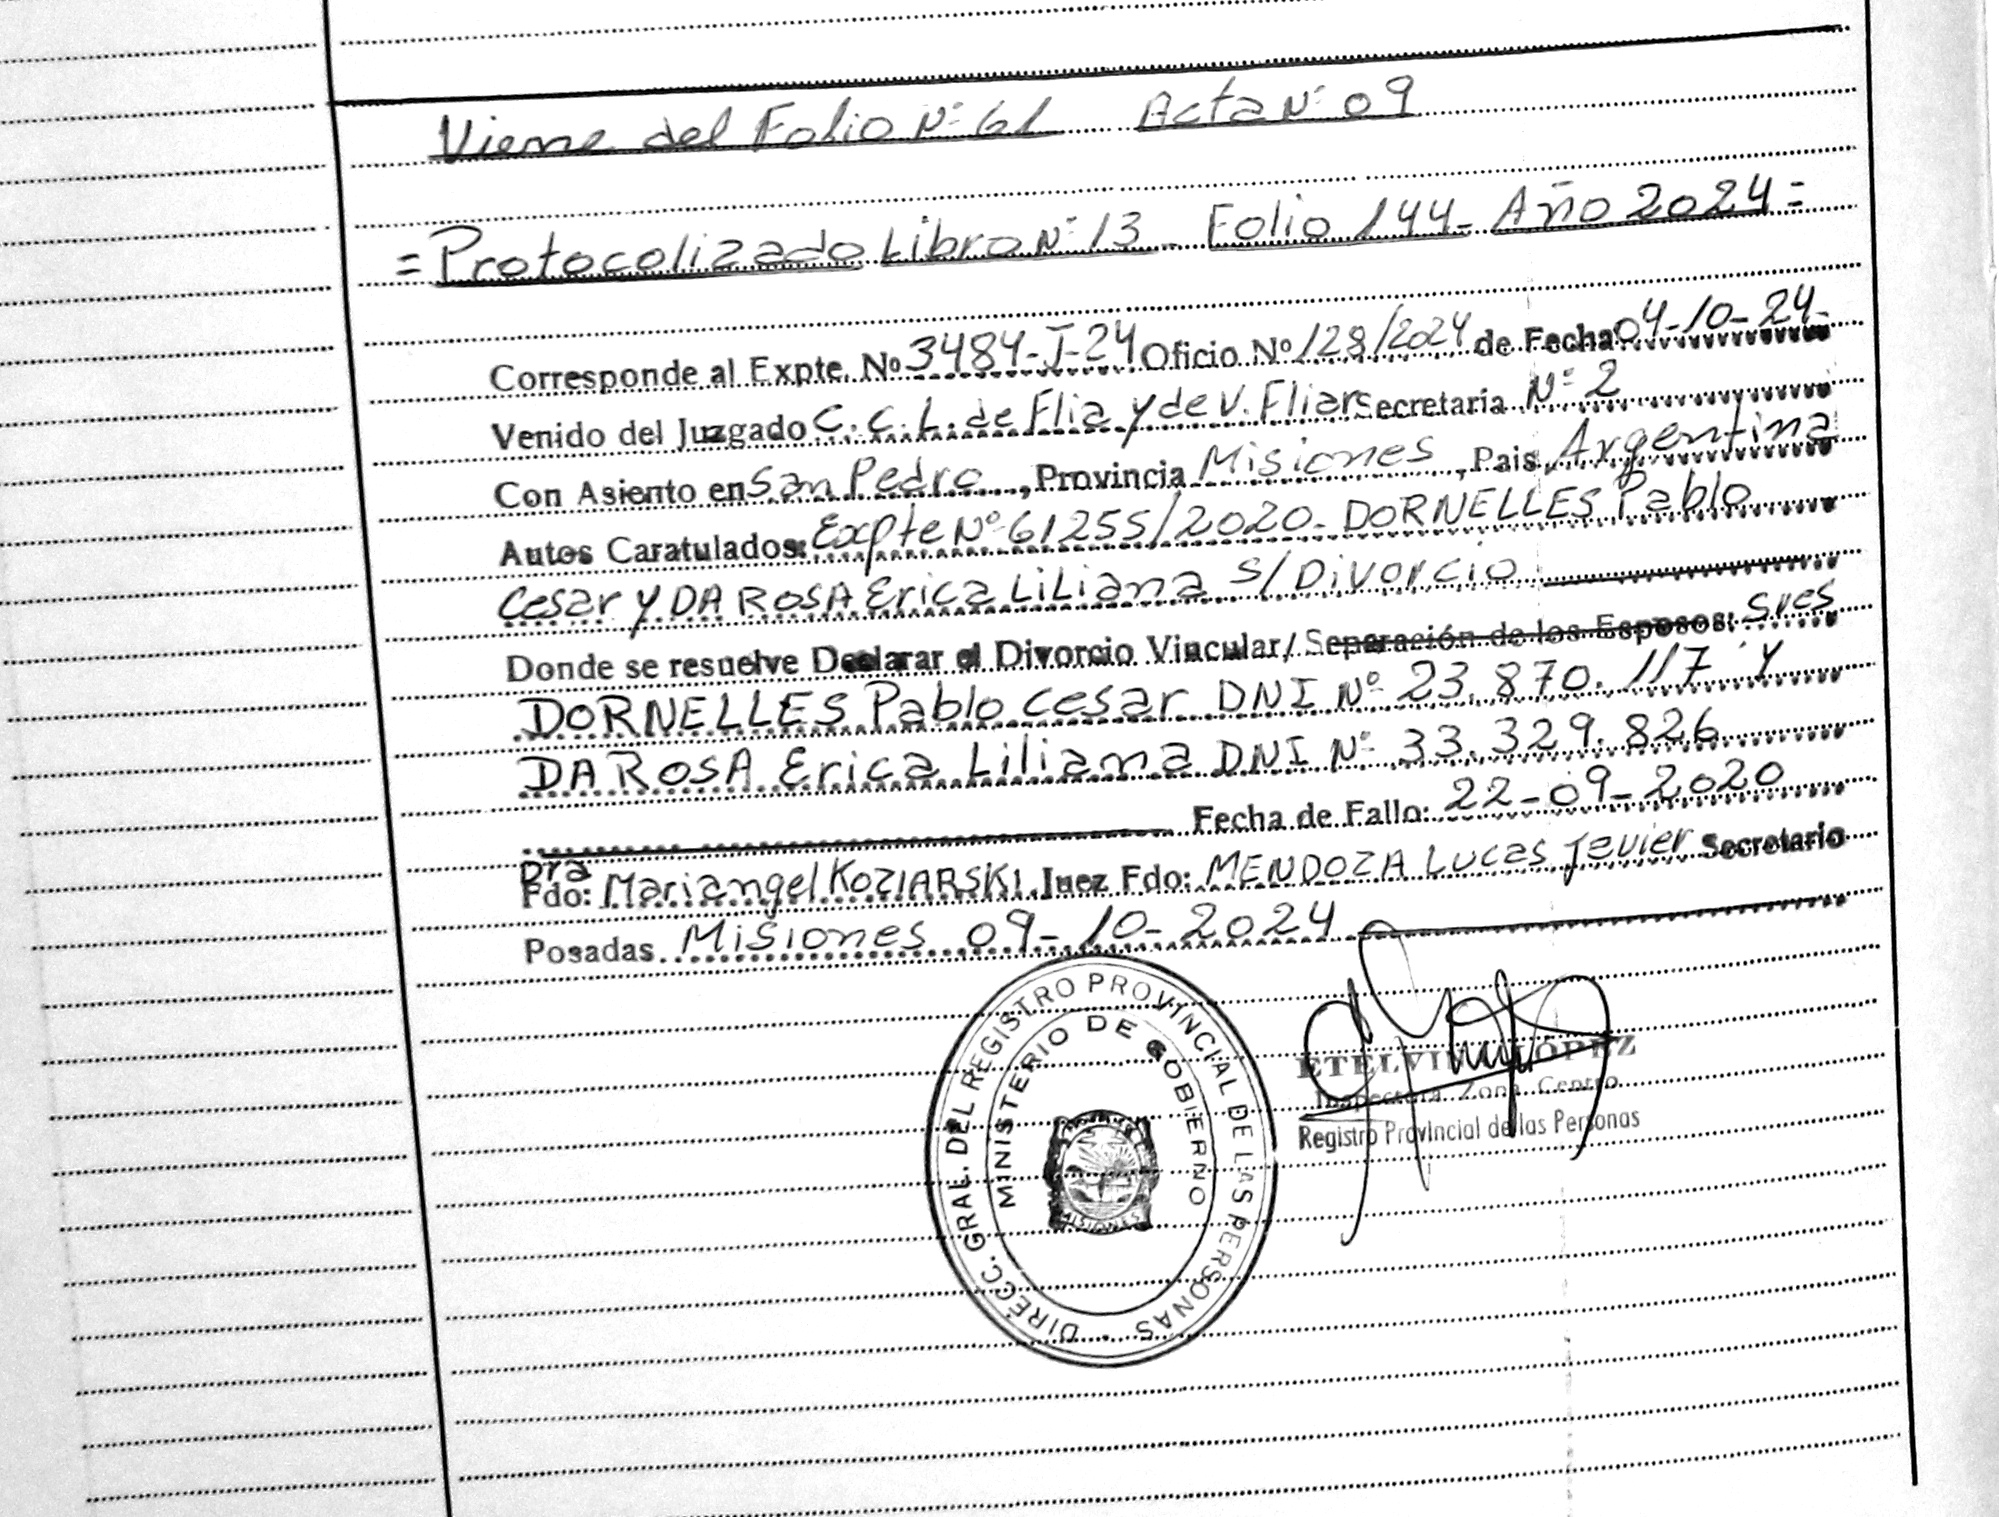 Viene del Folio Nº 61 Acta Nº 09
= Protocolizado Libro Nº 13 - Folio 144 - Año 2024 =
Corresponde al Expte. Nº 3484-I-24 Oficio Nº 128/2024 de Fecha 04-10-24-
Venido del Juzgado C.C.L. de Flia y de V. Fliar Secretaria Nº 2
Con Asiento en San Pedro, Provincia Misiones, Pais Argentina
Autos Caratulados: Expte Nº 61255/2020- DORNELLES Pablo
Cesar y DA ROSA Erica Liliana S/ Divorcio
Donde se resuelve Declarar el Divorcio Vincular/ Separación de los Esposos: Sres
DORNELLES Pablo Cesar DNI Nº 23.870.117 y
DA ROSA Erica Liliana DNI Nº 33.329.826
Fecha de Fallo: 22-09-2020
Dra
Fdo: Mariangel KOZIARSKI Juez Fdo: MENDOZA Lucas Javier Secretario
Posadas Misiones 09-10-2024
DIRECC. GRAL. DEL REGISTRO PROVINCIAL DE LAS PERSONAS
MINISTERIO DE GOBIERNO
MISIONES
ETELVINA LÓPEZ
Inspectora Zona Centro
Registro Provincial de las Personas